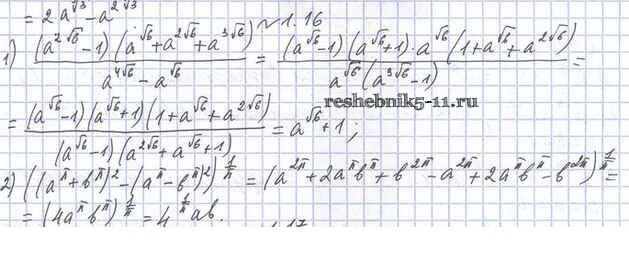 = 2a^√3 - a^2√3
№1.16
1) (a^2√6 - 1)(a^√6 + a^2√6 + a^3√6) / (a^4√6 - a^√6) = (a^√6 - 1)(a^√6 + 1)·a^√6(1 + a^√6 + a^2√6) / (a^√6(a^3√6 - 1)) =
reshebnik5-11.ru
= (a^√6 - 1)(a^√6 + 1)(1 + a^√6 + a^2√6) / ((a^√6 - 1)(a^2√6 + a^√6 + 1)) = a^√6 + 1;
2) ((a^π + b^π)^2 - (a^π - b^π)^2)^(1/π) = (a^2π + 2a^π b^π + b^2π - a^2π + 2a^π b^π - b^2π)^(1/π) =
= (4a^π b^π)^(1/π) = 4^(1/π) ab.
1.17